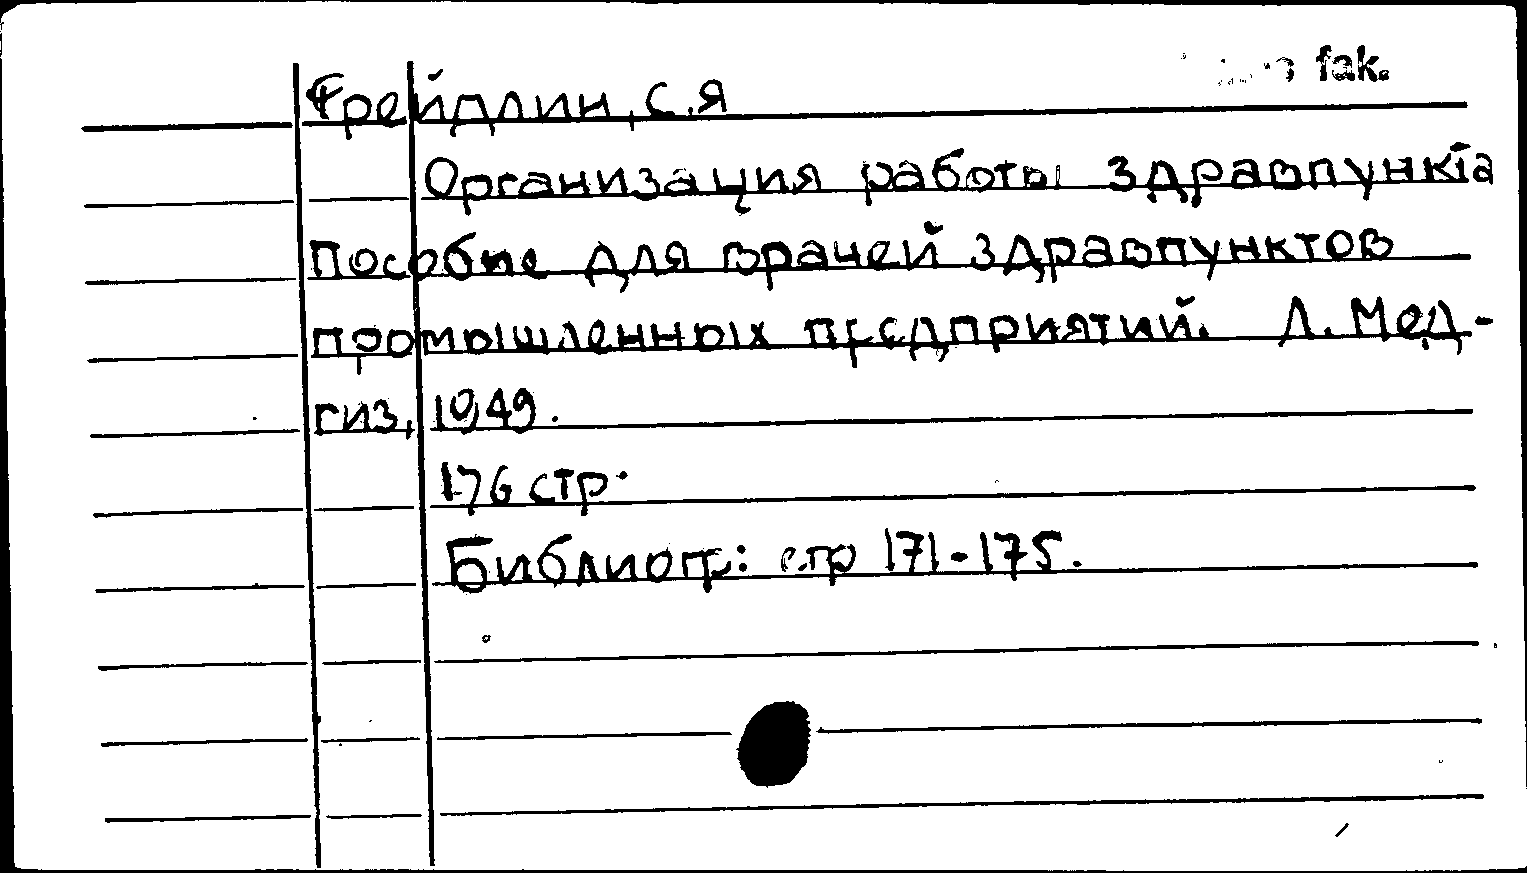 fak.
Фрейдлин, С.Я
Организация работы здравпункта
Пособие для врачей здравпунктов
промышленных предприятий. Л. Мед-
гиз, 1949.
176 стр.
Библиогр: стр 171-175.